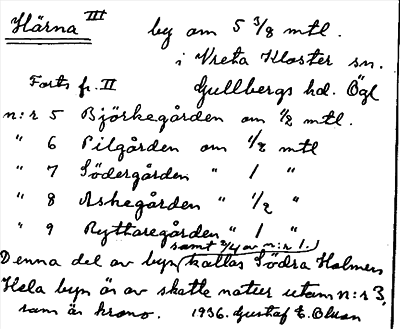 Härna III by om 5 3/8 mtl.
i Vreta Kloster sn.
Forts fr. II Gullbergs hd. Ögl
n:r 5 Björkegården om 1/2 mtl.
" 6 Pilgården om 1/2 mtl
" 7 Södergården " 1 "
" 8 Askegården " 1/2 "
" 9 Ryttaregården " 1 "
samt 3/4 av n:r 1.
Denna del av byn kallas Södra Holmen
Hela byn är av skatte natur utom n:r 3,
som är krono. 1936. Gustaf E. Olson